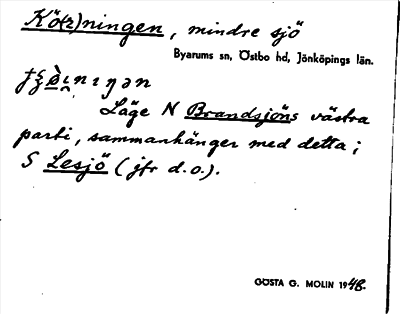 Kö(tr)ningen, mindre sjö
Byarums sn, Östbo hd, Jönköpings län.
Läge N Brandsjöns västra
parti, sammanhänger med detta;
S Lesjö (jfr d.o.).
GÖSTA G. MOLIN 1948.